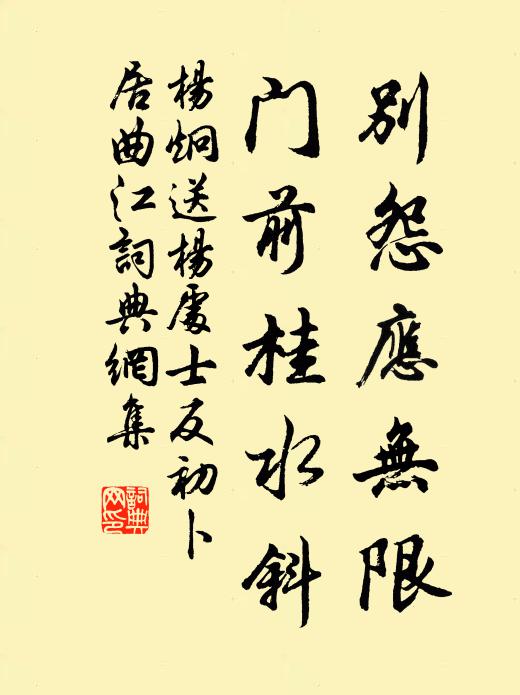 別怨應無限
門前桂水斜
楊炯送楊處士反初卜
居曲江詞典網集
詞典
网印